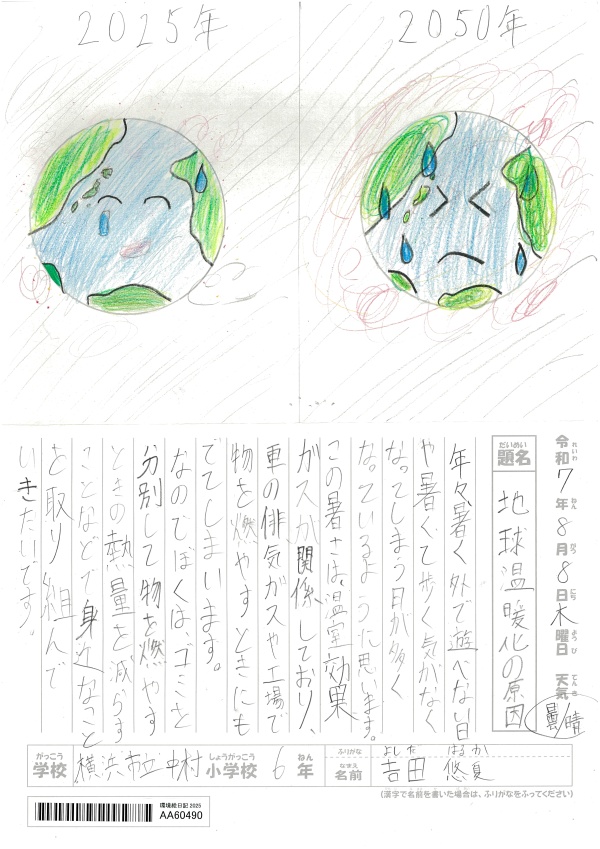 2025年
2050年
令和7年8月8日木曜日 天気 曇/晴
れいわ ねん がつ にち ようび てんき
だいめい
題名
地球温暖化の原因
年々、暑く外で遊べない日
や暑くて歩く気がなく
なってしまう日が多く
なっているように思います。
この暑さは、温室効果
ガスが関係しており、
車の俳気ガスや工場で
物を燃やすときにも
でてしまいます。
なのでぼくは、ゴミを
分別して物を燃やす
ときの熱量を減らす
ことなどで身近なこと
を取り組んで
いきたいです。
がっこう しょうがっこう ねん
学校 横浜市立 中村 小学校 6年
ふりがな よしだ はるか
なまえ
名前 吉田 悠夏
(漢字で名前を書いた場合は、ふりがなをふってください)
環境絵日記 2025
AA60490